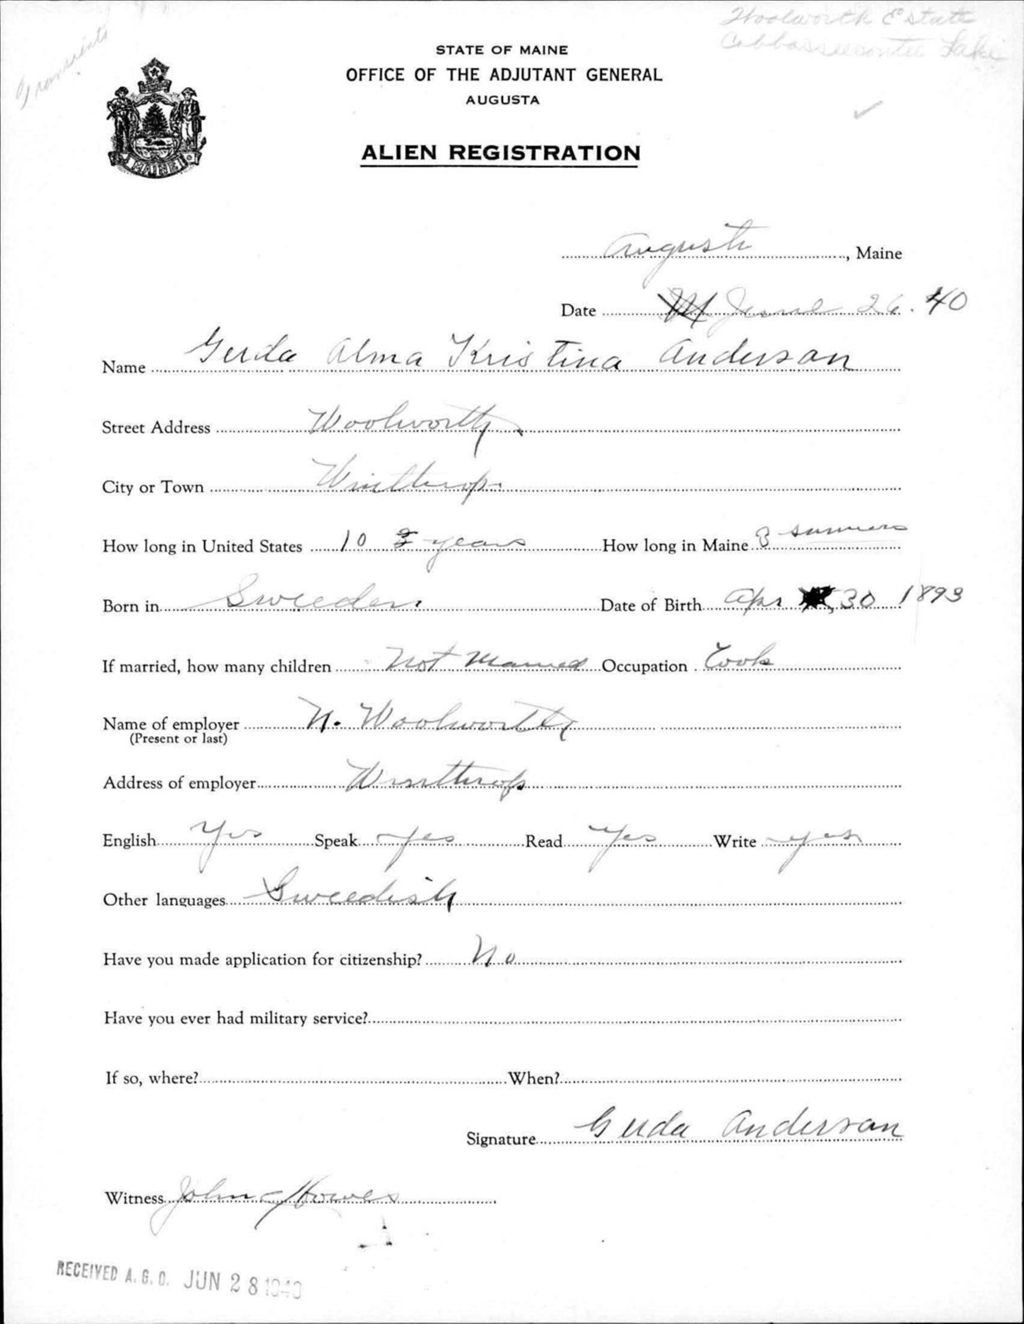 Transients
Woolworth Estate
Cobbosseecontee Lake
STATE OF MAINE
OFFICE OF THE ADJUTANT GENERAL
AUGUSTA
ALIEN REGISTRATION
Augusta, Maine
Date June 26. 40
Name Gerda Alma Kristina Anderson
Street Address Woolworth
City or Town Winthrop
How long in United States 10 years How long in Maine 8 summers
Born in Sweden Date of Birth Apr 30 1893
If married, how many children Not Married Occupation Cook
Name of employer N. Woolworth
(Present or last)
Address of employer Winthrop
English Yes Speak yes Read Yes Write yes
Other languages Sweedish
Have you made application for citizenship? No
Have you ever had military service?
If so, where? When?
Signature Gerda Anderson
Witness John Howes
RECEIVED A.G.O. JUN 28 1940